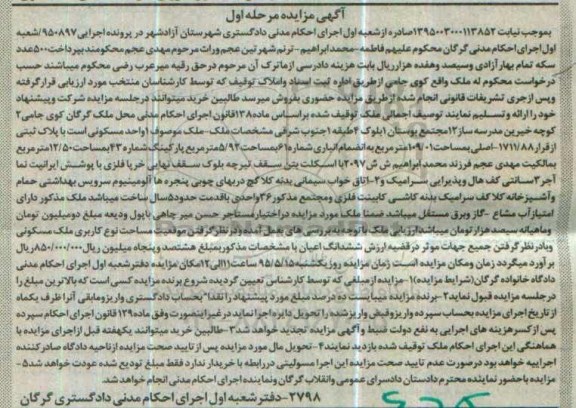 آگهی مزایده مرحله اول
بموجب نیابت ۱۳۹۵۰۰۳۰۰۰۱۱۳۸۵۲صادره از شعبه اول اجرای احکام مدنی دادگستری شهرستان آزادشهر در پرونده اجرایی ۹۵۰۸۹۷/شعبه
اول اجرای احکام مدنی گرگان محکوم علیهم فاطمه-محمدابراهیم- ترنم شهر تین عجم وراث مرحوم مهدی عجم محکومند بپرداخت ۵۰۰عدد
سکه تمام بهار آزادی وسیصد وهفده هزارریال بابت هزینه دادرسی از ماترک آن مرحوم در حق رقیه میرعرب رضی محکوم میباشند حسب
درخواست محکوم له ملک واقع کوی جامی از طریق اداره ثبت اسناد واملاک توقیف که توسط کارشناسان منتخب مورد ارزیابی قرار گرفته
وپس از جری تشریفات قانونی انجام شده از طریق مزایده حضوری بفروش میرسد طالبین خرید میتوانند در جلسه مزایده شرکت وپیشنهاد
خود را ارائه وتسلیم نمایند توصیف اجمالی ملک توقیف شده بر اساس ماده ۱۳۸قانون اجرای احکام مدنی محل ملک گرگان کوی جامی ۲
کوچه خیرین مدرسه ساز ۱۲مجتمع بوستان ۱بلوک ۴طبقه ۱جنوب شرقی مشخصات ملک-ملک موصوف ۱واحد مسکونی است با پلاک ثبتی
از قرار ۱۷۱۱/۸۸-اصلی بمساحت ۱۰۹/۰۱مترمربع به انضمام انباری شماره ۶۱بمساحت ۵/۹۲مترمربع پارکینگ شماره ۴۳بمساحت ۱۲/۵۰مترمربع
بمالکیت مهدی عجم فرزند محمدابراهیم ش ش ۲۰۹۷با اسکلت بتنی سقف تیرچه بلوک سقف نهایی خرپا فلزی با پوشش ایرانیت نما
آجر ۳سانتی کف هال وپذیرایی سرامیک و۲-اتاق خواب سیمانی بدنه کلا گچ دربهای چوبی پنجره ها آلومینیوم سرویس بهداشتی حمام
وآشپزخانه کلا کف سرامیک بدنه کاشی کابینت فلزی ومجتمع مذکور ۳۶واحدی باقدمت حدود ۵سال ساخت میباشد ملک مذکور دارای
امتیاز آب مشاع -گاز وبرق مستقل میباشد ضمنا ملک مورد مزایده در اختیار مستاجر حسن میر چاهی با پول ودیعه مبلغ دومیلیون تومان
وماهیانه سیصد هزار تومان میباشد ارزیابی ملک با توجه به بررسی های بعمل آمده ودر نظر گرفتن موقعیت مساحت نوع کاربری ملک مسکونی
وبا در نظر گرفتن جمیع جهات موثر در قضیه ارزش ششدانگ اعیان با مشخصات مذکور بمبلغ هشتصد وپنجاه میلیون ریال ۸۵۰/۰۰۰/۰۰۰ریال
برآورد میگردد زمان ومکان مزایده است زمان مزایده روز یکشنبه ۹۵/۵/۱۵ ساعت ۱۱الی ۱۲مکان مزایده دفتر شعبه اول اجرای احکام مدنی
دادگاه خانواده گرگان (شرایط مزایده) ۱-مزایده از مبلغی که توسط کارشناس تعیین گردیده شروع برنده مزایده کسی است که بالاترین مبلغ را
در جلسه مزایده قبول نماید ۲-برنده مزایده میبایست ده درصد مبلغ مورد پیشنهاد را نقدا" بحساب دادگستری واریز ومابقی آنرا ظرف یکماه
از تاریخ اجرای مزایده بحساب سپرده واریز وفیش واریز شده را تحویل دایره اجرا نماید در غیر اینصورت وفق ماده ۱۲۹قانون اجرای احکام سپرده
پس از کسر هزینه های اجرایی به نفع دولت ضبط و آگهی مزایده تجدید خواهد شد ۳-طالبین خرید میتوانند یکهفته قبل از اجرای مزایده با
هماهنگی این اجرای احکام ملک توقیف شده بازدید نمایند ۴-تحویل مال مورد مزایده پس از تایید صحت مزایده از ناحیه دادگاه صادر کننده
اجراییه خواهد بود در صورت عدم تایید صحت مزایده این اجرا مسولیتی در رابطه با خریدار ندارد فقط مبلغ تودیع شده عودت خواهد شد ۵-
مزایده با حضور نماینده محترم دادستان دادسرای عمومی وانقلاب گرگان ونماینده اجرای احکام مدنی انجام خواهد شد.
۲۷۹۸-دفتر شعبه اول اجرای احکام مدنی دادگستری گرگان